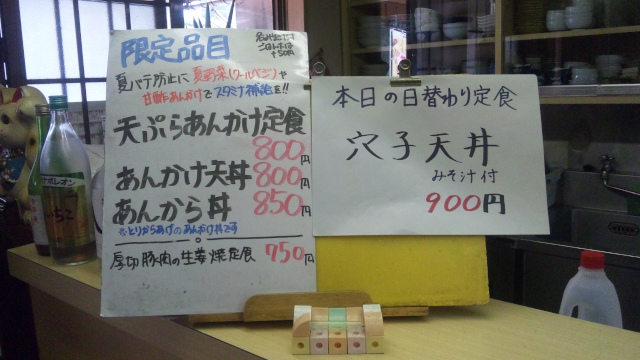 限定品目
ごはん大は
+50円
夏バテ防止に夏野菜(ゴールペン)や
甘酢あんかけでスタミナ補給を!!
天ぷらあんかけ定食
800円
あんかけ天丼 800円
あんから丼 850円
※とりからあげのあんかけ丼です
厚切豚肉の生姜焼定食 750円
本日の日替わり定食
穴子天丼
みそ汁付
900円
ナポレオン
いちこ